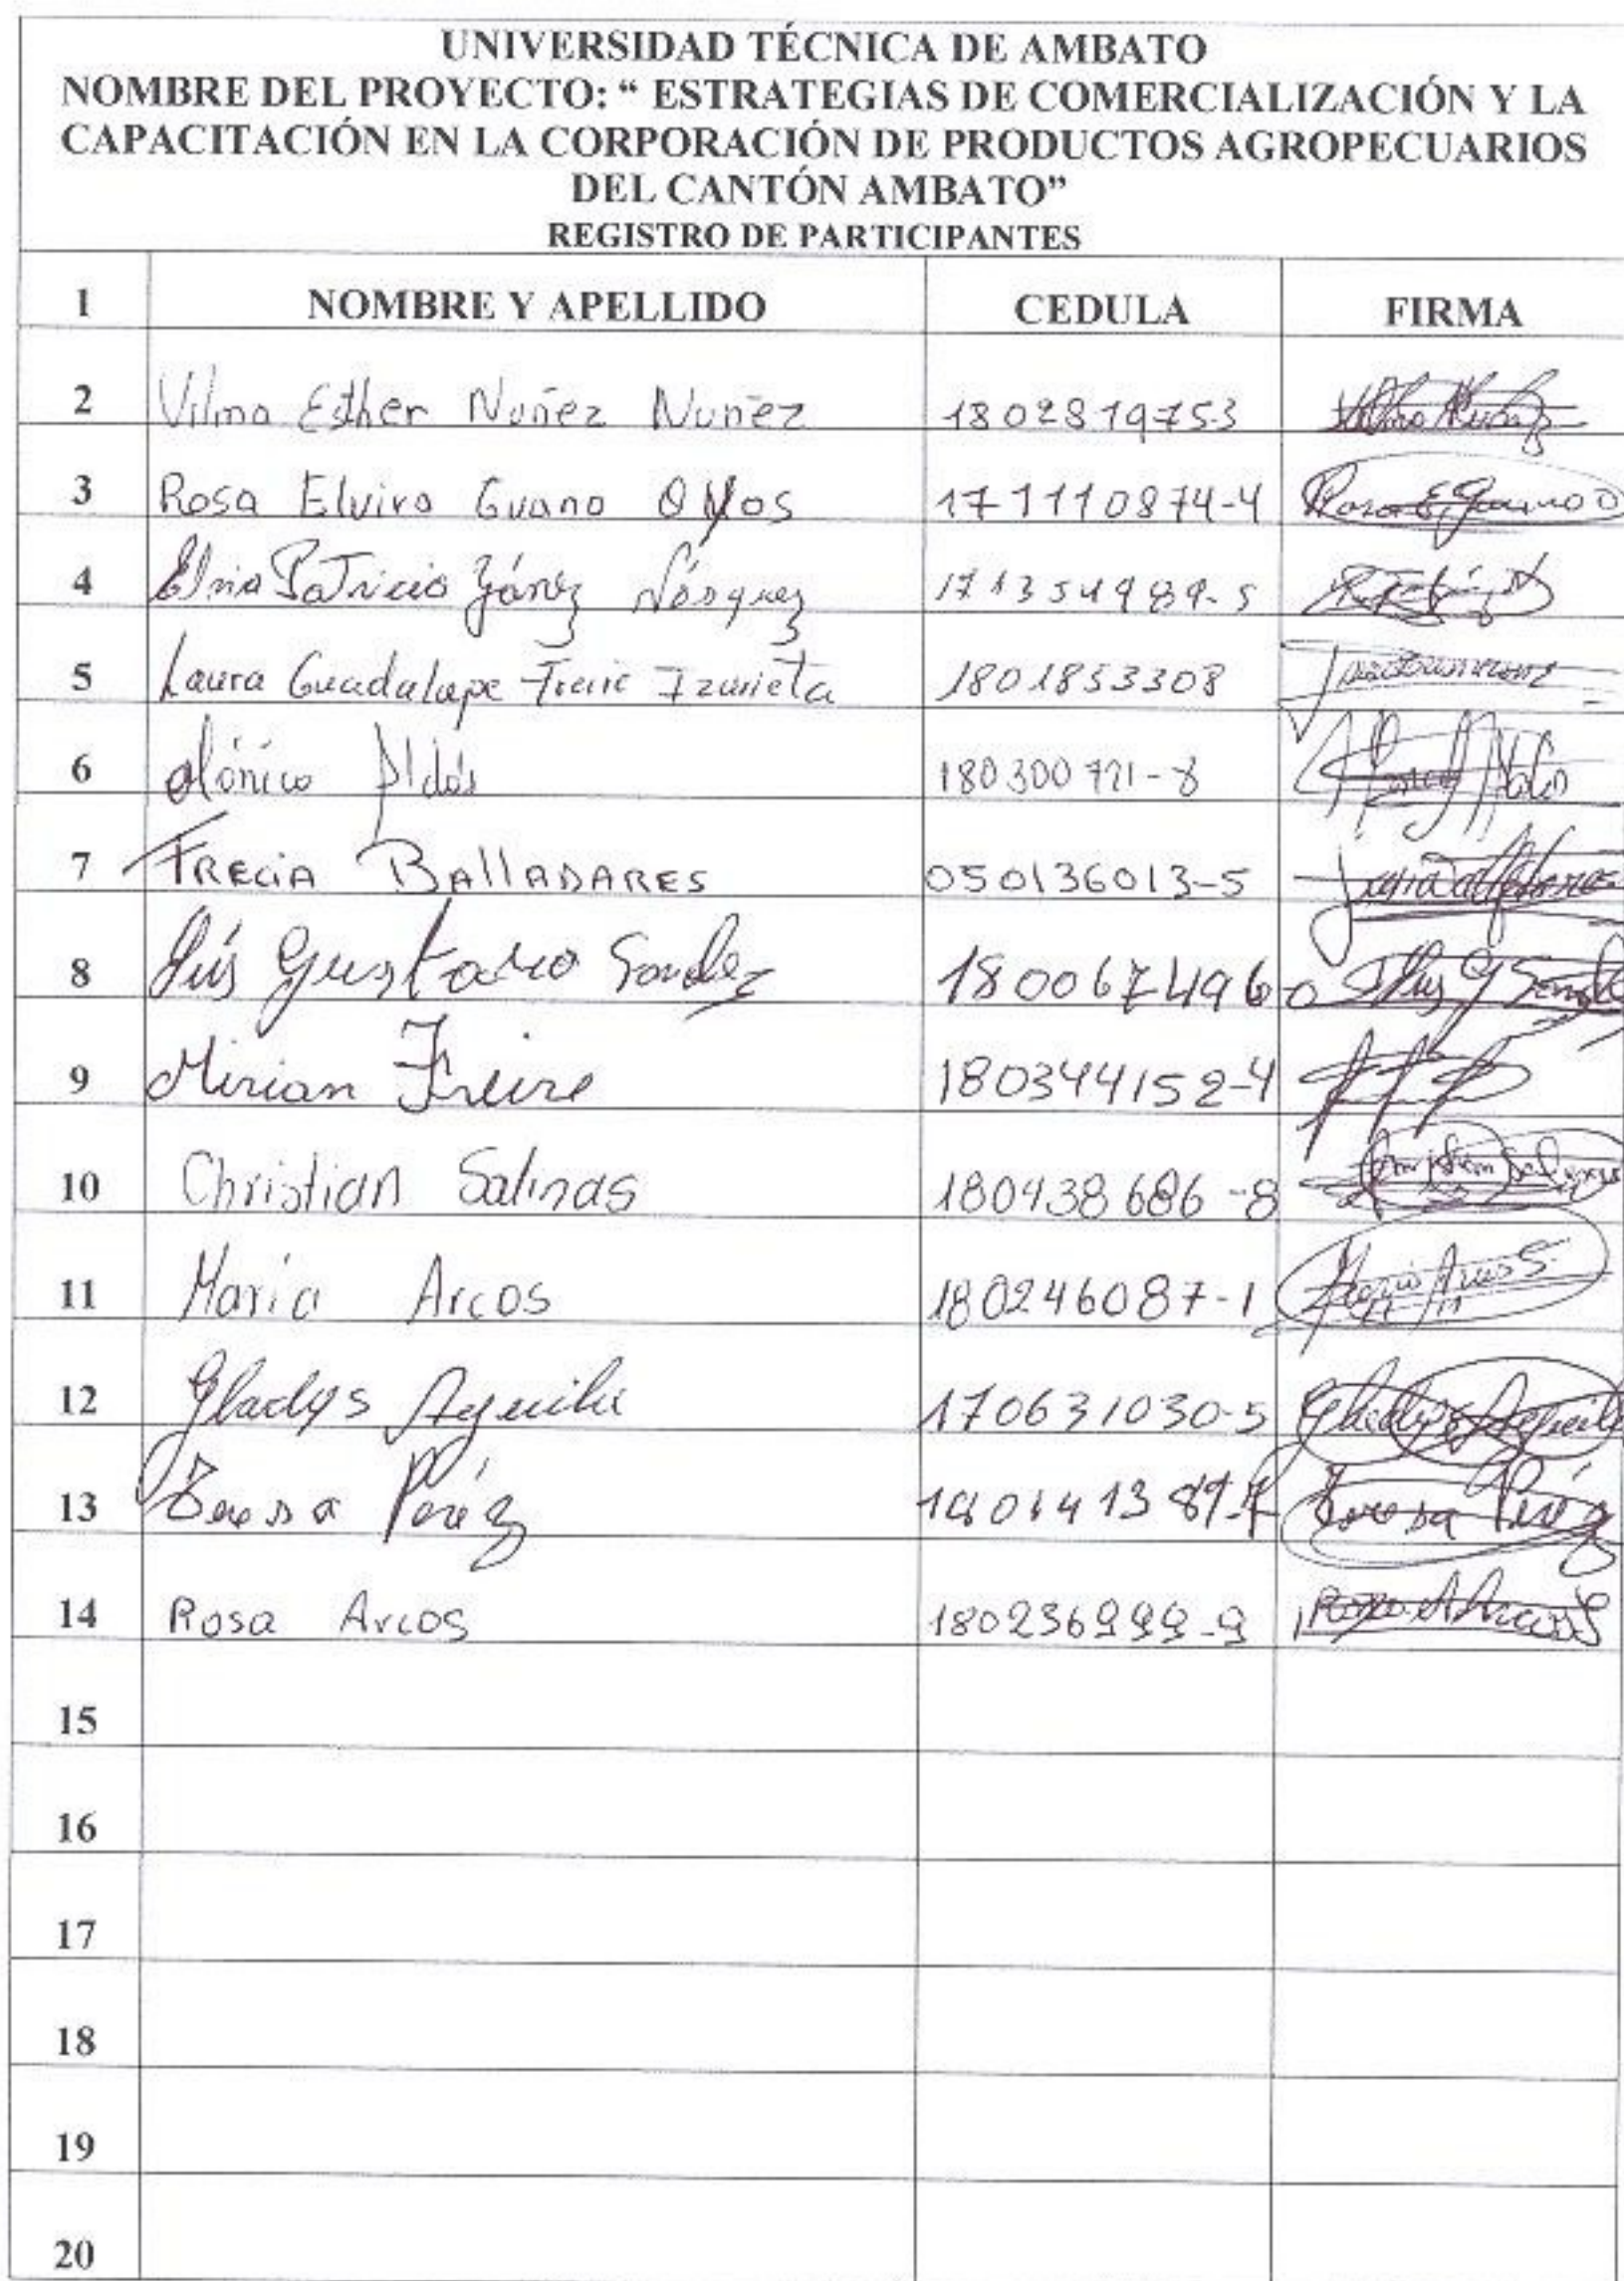 UNIVERSIDAD TÉCNICA DE AMBATO
NOMBRE DEL PROYECTO: “ ESTRATEGIAS DE COMERCIALIZACIÓN Y LA
CAPACITACIÓN EN LA CORPORACIÓN DE PRODUCTOS AGROPECUARIOS
DEL CANTÓN AMBATO”
REGISTRO DE PARTICIPANTES
1 NOMBRE Y APELLIDO CEDULA FIRMA
2 Vilma Esther Nuñez Nuñez 1802819753
3 Rosa Elvira Guano 171110874-4
4 Patricio Yánez 171354989-5
5 Laura Guadalupe Freire Izurieta 1801853308
6 Mónica Aldás 180300721-8
7 FRECIA BAllADARES 050136013-5
8 Luís Gustavo 180067496-0
9 Mirian Freire 180344152-4
10 Christian Salinas 180438686-8 Christian Salinas
11 María Arcos 180246087-1 María Arcos S.
12 Gladys Aguilar 170631030-5 Gladys
13 Teresa Peréz Teresa Peréz
14 Rosa Arcos 180236999-9 Rosa A Arcos S
15
16
17
18
19
20